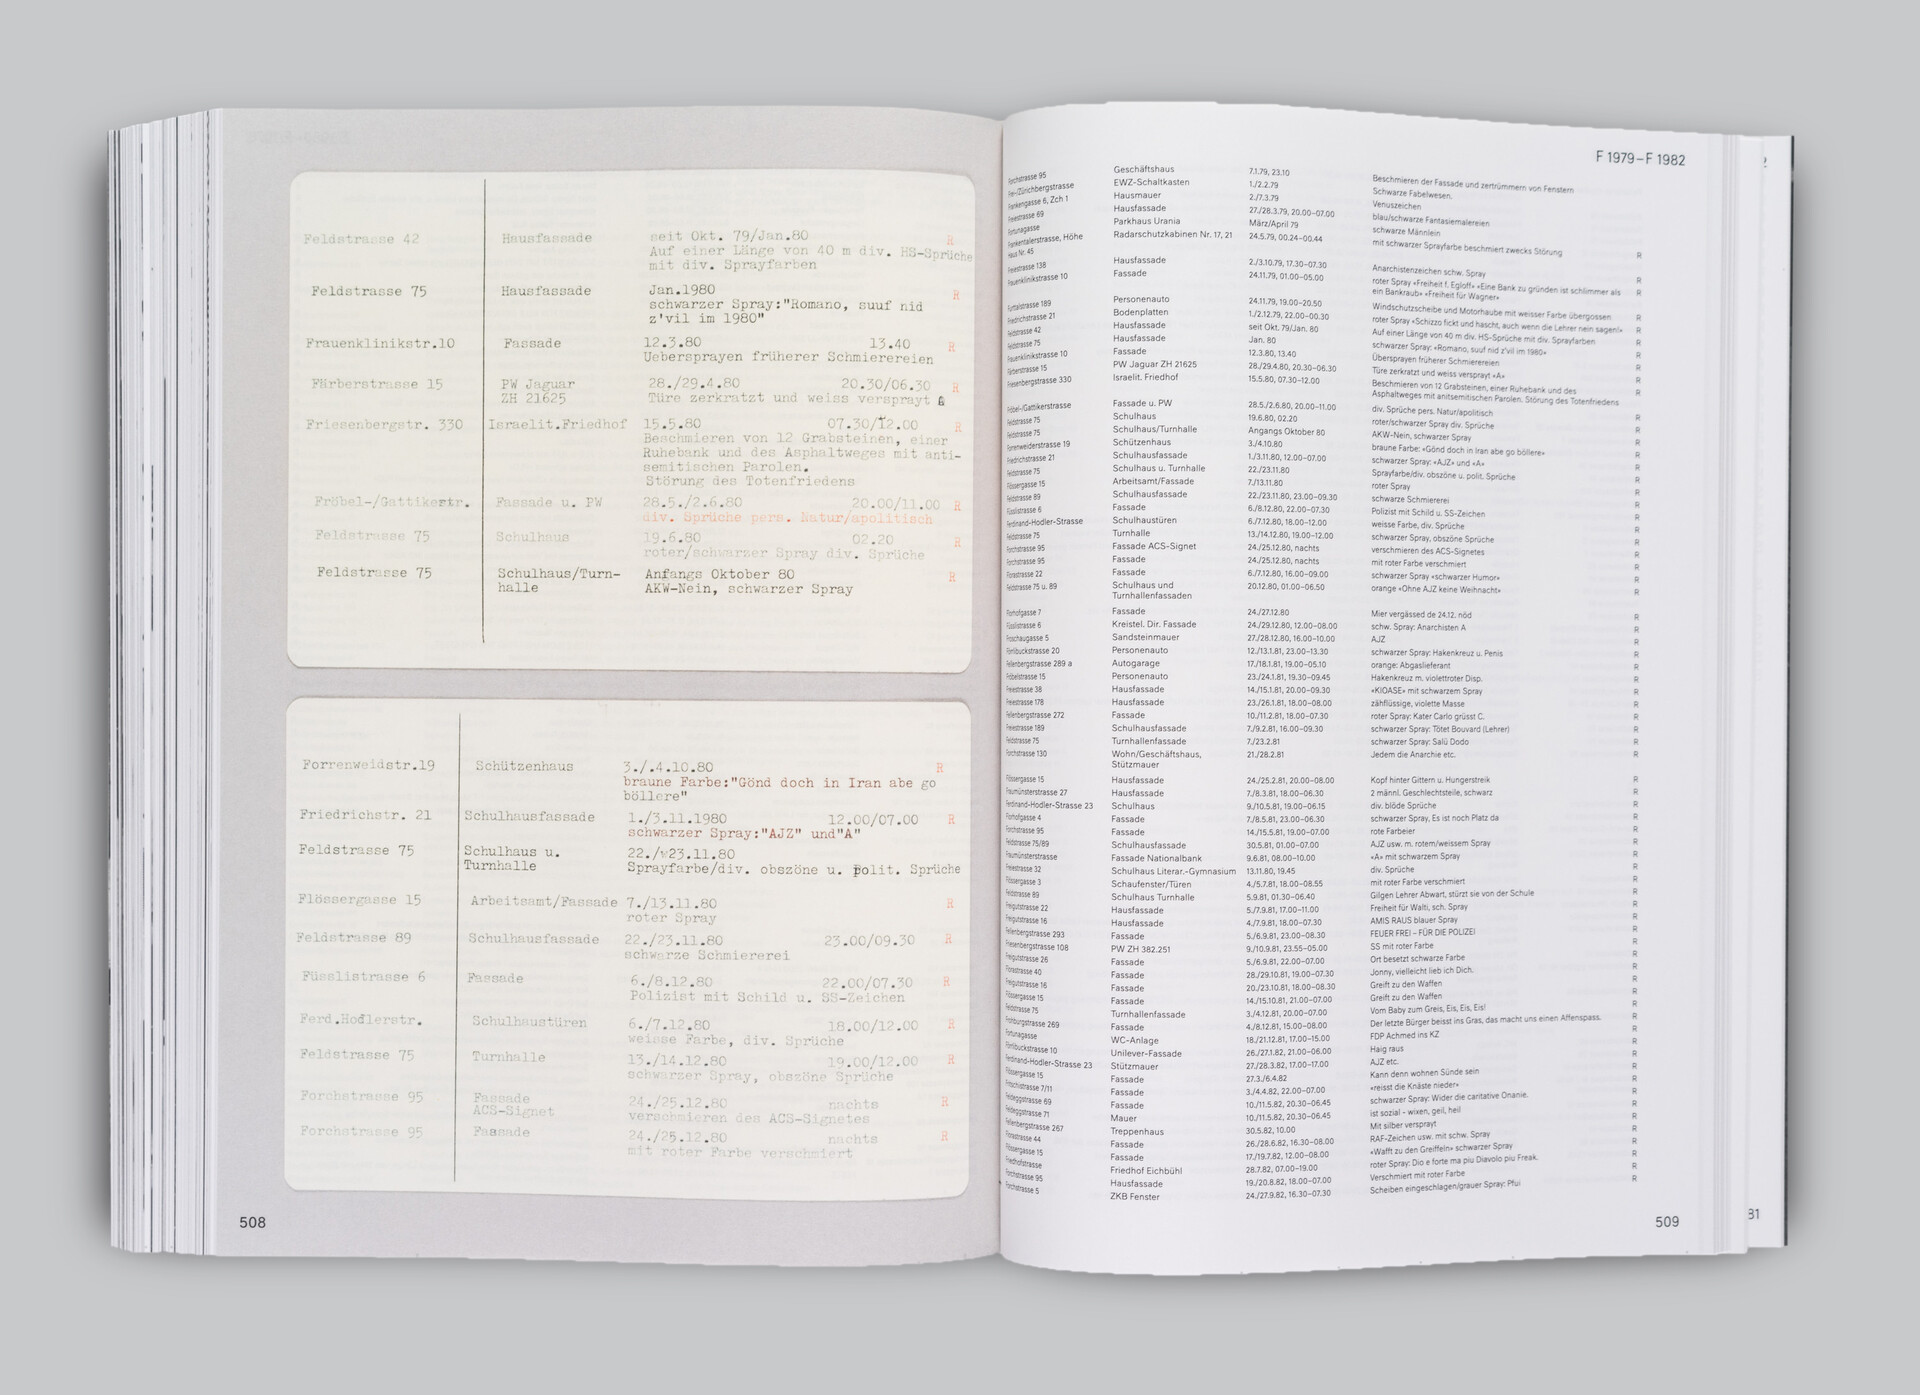 Feldstrasse 42 Hausfassade seit Okt. 79/Jan.80 R
Auf einer Länge von 40 m div. HS-Sprüche
mit div. Sprayfarben
Feldstrasse 75 Hausfassade Jan.1980 R
schwarzer Spray:"Romano, suuf nid
z'vil im 1980"
Frauenklinikstr.10 Fassade 12.3.80 13.40 R
Uebersprayen früherer Schmierereien
Färberstrasse 15 PW Jaguar 28./29.4.80 20.30/06.30 R
ZH 21625 Türe zerkratzt und weiss versprayt
Friesenbergstr. 330 Israelit.Friedhof 15.5.80 07.30/12.00 R
Beschmieren von 12 Grabsteinen, einer
Ruhebank und des Asphaltweges mit anti-
semitischen Parolen.
Störung des Totenfriedens
Fröbel-/Gattikestr. Fassade u. PW 28.5./2.6.80 20.00/11.00 R
div. Sprüche pers. Natur/apolitisch
Feldstrasse 75 Schulhaus 19.6.80 02.20 R
roter/schwarzer Spray div. Sprüche
Feldstrasse 75 Schulhaus/Turn- Anfangs Oktober 80 R
halle AKW-Nein, schwarzer Spray
Forrenweidstr.19 Schützenhaus 3./.4.10.80 R
braune Farbe:"Gönd doch in Iran abe go
böllere"
Friedrichstr. 21 Schulhausfassade 1./3.11.1980 12.00/07.00 R
schwarzer Spray:"AJZ" und"A"
Feldstrasse 75 Schulhaus u. 22./23.11.80
Turnhalle Sprayfarbe/div. obszöne u. polit. Sprüche
Flössergasse 15 Arbeitsamt/Fassade 7./13.11.80 R
roter Spray
Feldstrasse 89 Schulhausfassade 22./23.11.80 23.00/09.30 R
schwarze Schmiererei
Füsslistrasse 6 Fassade 6./8.12.80 22.00/07.30 R
Polizist mit Schild u. SS-Zeichen
Ferd.Hodlerstr. Schulhaustüren 6./7.12.80 18.00/12.00 R
weisse Farbe, div. Sprüche
Feldstrasse 75 Turnhalle 13./14.12.80 19.00/12.00 R
schwarzer Spray, obszöne Sprüche
Forchstrasse 95 Fassade 24./25.12.80 nachts R
ACS-Signet verschmieren des ACS-Signetes
Forchstrasse 95 Fassade 24./25.12.80 nachts R
mit roter Farbe verschmiert
508
F 1979–F 1982
Forchstrasse 95 Geschäftshaus 7.1.79, 23.10 Beschmieren der Fassade und zertrümmern von Fenstern
Frei-/Zürichbergstrasse EWZ-Schaltkasten 1./2.2.79 Schwarze Fabelwesen.
Frankengasse 6, Zch 1 Hausmauer 2./7.3.79 Venuszeichen
Freiestrasse 69 Hausfassade 27./28.3.79, 20.00–07.00 blau/schwarze Fantasiemalereien
Fortunagasse Parkhaus Urania März/April 79 schwarze Männlein
Frankentalerstrasse, Höhe Radarschutzkabinen Nr. 17, 21 24.5.79, 00.24–00.44 mit schwarzer Sprayfarbe beschmiert zwecks Störung R
Haus Nr. 45
Freiestrasse 138 Hausfassade 2./3.10.79, 17.30–07.30 Anarchistenzeichen schw. Spray R
Frauenklinikstrasse 10 Fassade 24.11.79, 01.00–05.00 roter Spray «Freiheit f. Egloff» «Eine Bank zu gründen ist schlimmer als R
ein Bankraub» «Freiheit für Wagner»
189 Personenauto 24.11.79, 19.00–20.50 Windschutzscheibe und Motorhaube mit weisser Farbe übergossen R
Friedrichstrasse 21 Bodenplatten 1./2.12.79, 22.00–00.30 roter Spray «Schizzo fickt und hascht, auch wenn die Lehrer nein sagen!» R
Feldstrasse 42 Hausfassade seit Okt. 79/Jan. 80 Auf einer Länge von 40 m div. HS-Sprüche mit div. Sprayfarben R
Feldstrasse 75 Hausfassade Jan. 80 schwarzer Spray: «Romano, suuf nid z'vil im 1980» R
Frauenklinikstrasse 10 Fassade 12.3.80, 13.40 Übersprayen früherer Schmierereien R
Färberstrasse 15 PW Jaguar ZH 21625 28./29.4.80, 20.30–06.30 Türe zerkratzt und weiss versprayt «A» R
Friesenbergstrasse 330 Israelit. Friedhof 15.5.80, 07.30–12.00 Beschmieren von 12 Grabsteinen, einer Ruhebank und des R
Asphaltweges mit anitsemitischen Parolen. Störung des Totenfriedens
Fröbel-/Gattikerstrasse Fassade u. PW 28.5./2.6.80, 20.00–11.00 div. Sprüche pers. Natur/apolitisch R
Feldstrasse 75 Schulhaus 19.6.80, 02.20 roter/schwarzer Spray div. Sprüche R
Feldstrasse 75 Schulhaus/Turnhalle Angangs Oktober 80 AKW-Nein, schwarzer Spray R
Forrenweiderstrasse 19 Schützenhaus 3./4.10.80 braune Farbe: «Gönd doch in Iran abe go böllere» R
Friedrichstrasse 21 Schulhausfassade 1./3.11.80, 12.00–07.00 schwarzer Spray: «AJZ» und «A» R
Feldstrasse 75 Schulhaus u. Turnhalle 22./23.11.80 Sprayfarbe/div. obszöne u. polit. Sprüche R
Flössergasse 15 Arbeitsamt/Fassade 7./13.11.80 roter Spray R
Feldstrasse 89 Schulhausfassade 22./23.11.80, 23.00–09.30 schwarze Schmiererei R
Füsslistrasse 6 Fassade 6./8.12.80, 22.00–07.30 Polizist mit Schild u. SS-Zeichen R
Ferdinand-Hodler-Strasse Schulhaustüren 6./7.12.80, 18.00–12.00 weisse Farbe, div. Sprüche R
Feldstrasse 75 Turnhalle 13./14.12.80, 19.00–12.00 schwarzer Spray, obszöne Sprüche R
Forchstrasse 95 Fassade ACS-Signet 24./25.12.80, nachts verschmieren des ACS-Signetes R
Forchstrasse 95 Fassade 24./25.12.80, nachts mit roter Farbe verschmiert R
Florastrasse 22 Fassade 6./7.12.80, 16.00–09.00 schwarzer Spray «schwarzer Humor» R
Feldstrasse 75 u. 89 Schulhaus und 20.12.80, 01.00–06.50 orange «Ohne AJZ keine Weihnacht» R
Turnhallenfassaden
Florhofgasse 7 Fassade 24./27.12.80 Mier vergässed de 24.12. nöd R
Füsslistrasse 6 Kreistel. Dir. Fassade 24./29.12.80, 12.00–08.00 schw. Spray: Anarchisten A R
Froschaugasse 5 Sandsteinmauer 27./28.12.80, 16.00–10.00 AJZ R
Förrlibuckstrasse 20 Personenauto 12./13.1.81, 23.00–13.30 schwarzer Spray: Hakenkreuz u. Penis R
Fellenbergstrasse 289 a Autogarage 17./18.1.81, 19.00–05.10 orange: Abgaslieferant R
Fröbelstrasse 15 Personenauto 23./24.1.81, 19.30–09.45 Hakenkreuz m. violettroter Disp. R
Freiestrasse 38 Hausfassade 14./15.1.81, 20.00–09.30 «KIOASE» mit schwarzem Spray R
Freiestrasse 178 Hausfassade 23./26.1.81, 18.00–08.00 zähflüssige, violette Masse R
Fellenbergstrasse 272 Fassade 10./11.2.81, 18.00–07.30 roter Spray: Kater Carlo grüsst C. R
Freiestrasse 189 Schulhausfassade 7./9.2.81, 16.00–09.30 schwarzer Spray: Tötet Bouvard (Lehrer) R
Feldstrasse 75 Turnhallenfassade 7./23.2.81 schwarzer Spray: Salü Dodo R
Forchstrasse 130 Wohn/Geschäftshaus, 21./28.2.81 Jedem die Anarchie etc. R
Stützmauer
Flössergasse 15 Hausfassade 24./25.2.81, 20.00–08.00 Kopf hinter Gittern u. Hungerstreik R
Fraumünsterstrasse 27 Hausfassade 7./8.3.81, 18.00–06.30 2 männl. Geschlechtsteile, schwarz R
Ferdinand-Hodler-Strasse 23 Schulhaus 9./10.5.81, 19.00–06.15 div. blöde Sprüche R
Florhofgasse 4 Fassade 7./8.5.81, 23.00–06.30 schwarzer Spray, Es ist noch Platz da R
Forchstrasse 95 Fassade 14./15.5.81, 19.00–07.00 rote Farbeier R
Feldstrasse 75/89 Schulhausfassade 30.5.81, 01.00–07.00 AJZ usw. m. rotem/weissem Spray R
Fraumünsterstrasse Fassade Nationalbank 9.6.81, 08.00–10.00 «A» mit schwarzem Spray R
Freiestrasse 32 Schulhaus Literar.-Gymnasium 13.11.80, 19.45 div. Sprüche R
Flössergasse 3 Schaufenster/Türen 4./5.7.81, 18.00–08.55 mit roter Farbe verschmiert R
Feldstrasse 89 Schulhaus Turnhalle 5.9.81, 01.30–06.40 Gilgen Lehrer Abwart, stürzt sie von der Schule R
Freigutstrasse 22 Hausfassade 5./7.9.81, 17.00–11.00 Freiheit für Walti, sch. Spray R
Freigutstrasse 16 Hausfassade 4./7.9.81, 18.00–07.30 AMIS RAUS blauer Spray R
Fellenbergstrasse 293 Fassade 5./6.9.81, 23.00–08.30 FEUER FREI – FÜR DIE POLIZEI R
Friesenbergstrasse 108 PW ZH 382.251 9./10.9.81, 23.55–05.00 SS mit roter Farbe R
Freigutstrasse 26 Fassade 5./6.9.81, 22.00–07.00 Ort besetzt schwarze Farbe R
Florastrasse 40 Fassade 28./29.10.81, 19.00–07.30 Jonny, vielleicht lieb ich Dich. R
Freigutstrasse 16 Fassade 20./23.10.81, 18.00–08.30 Greift zu den Waffen R
Flössergasse 15 Fassade 14./15.10.81, 21.00–07.00 Greift zu den Waffen R
Feldstrasse 75 Turnhallenfassade 3./4.12.81, 20.00–07.00 Vom Baby zum Greis, Eis, Eis, Eis! R
Frohburgstrasse 269 Fassade 4./8.12.81, 15.00–08.00 Der letzte Bürger beisst ins Gras, das macht uns einen Affenspass. R
Fortunagasse WC-Anlage 18./21.12.81, 17.00–15.00 FDP Achmed ins KZ R
Förrlibuckstrasse 10 Unilever-Fassade 26./27.1.82, 21.00–06.00 Haig raus R
Ferdinand-Hodler-Strasse 23 Stützmauer 27./28.3.82, 17.00–17.00 AJZ etc. R
Flössergasse 15 Fassade 27.3./6.4.82 Kann denn wohnen Sünde sein R
Fritschistrasse 7/11 Fassade 3./4.4.82, 22.00–07.00 «reisst die Knäste nieder» R
Feldeggstrasse 69 Fassade 10./11.5.82, 20.30–06.45 schwarzer Spray: Wider die caritative Onanie. R
Feldeggstrasse 71 Mauer 10./11.5.82, 20.30–06.45 ist sozial – wixen, geil, heil R
Fellenbergstrasse 267 Treppenhaus 30.5.82, 10.00 Mit silber versprayt R
Florastrasse 44 Fassade 26./28.6.82, 16.30–08.00 RAF-Zeichen usw. mit schw. Spray R
Flössergasse 15 Fassade 17./19.7.82, 12.00–08.00 «Wafft zu den Greiffeln» schwarzer Spray R
Friedhofstrasse Friedhof Eichbühl 28.7.82, 07.00–19.00 roter Spray: Dio e forte ma piu Diavolo piu Freak. R
Forchstrasse 95 Hausfassade 19./20.8.82, 18.00–07.00 Verschmiert mit roter Farbe R
Forchstrasse 5 ZKB Fenster 24./27.9.82, 16.30–07.30 Scheiben eingeschlagen/grauer Spray: Pfui R
509